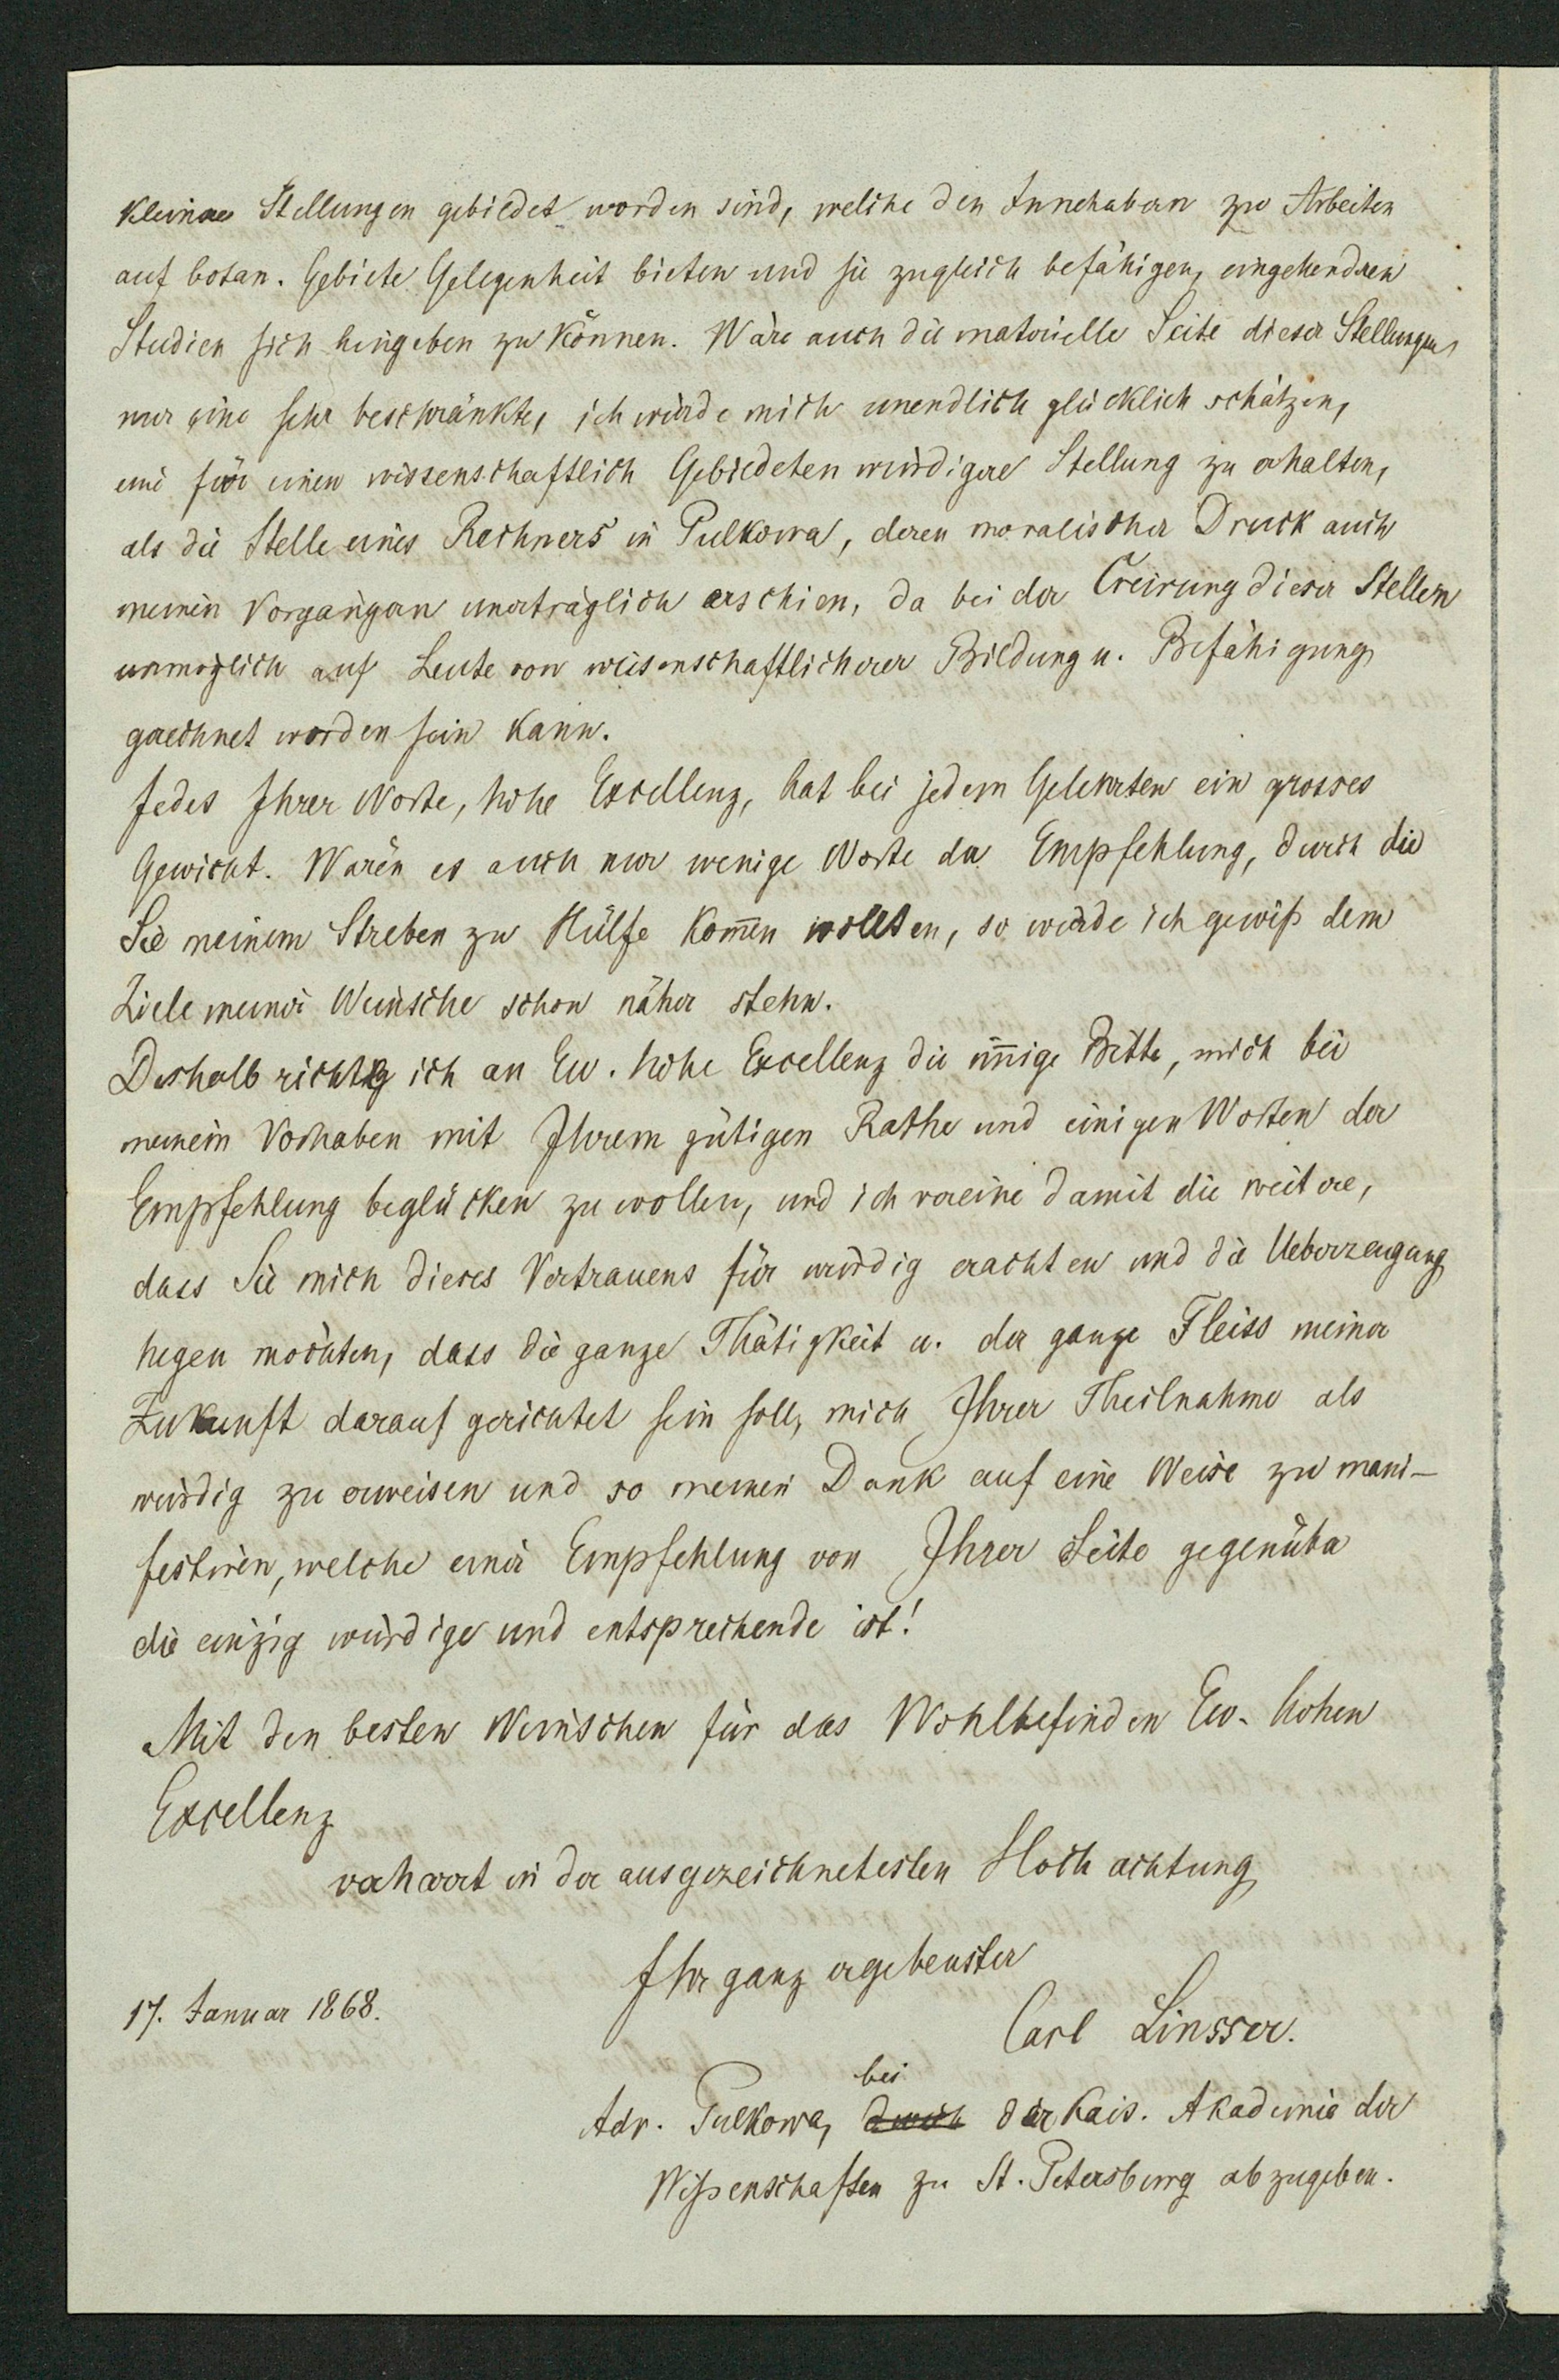 kleinere Stellungen gebildet worden sind, welche den Innehabern zu Arbeiten
auf botan. Gebiete Gelegenheit bieten und sie zugleich befähigen, eingehenderen
Studien sich hingeben zu können. Wäre auch die materielle Seite dieser Stellungen
nur eine sehr beschränkte, ich würde mich unendlich glücklich schätzen,
eine für einen wissenschaftlich Gebildeten würdigere Stellung zu erhalten,
als die Stelle eines Rechners in Pulkowa, deren moralischer Druck auch
meinen Vorgängern unerträglich erschien, da bei der Creirung dieser Stellen
unmöglich auf Leute von wissenschaftlicherer Bildung u. Befähigung
gerechnet worden sein kann.
Jedes Ihrer Worte, hohe Excellenz, hat bei jedem Gelehrten ein grosses
Gewicht. Wären es auch nur wenige Worte der Empfehlung, durch die
Sie meinem Streben zu Hülfe kom̄en wollten, so würde ich gewiß dem
Ziele meiner Wünsche schon näher stehn.
Deshalb richte ich an Ew. hohe Excellenz die in̄nige Bitte, mich bei
meinem Vorhaben mit Ihrem gütigen Rathe und einigen Worten der
Empfehlung beglücken zu wollen, und ich vereine damit die weitere,
dass Sie mich dieses Vertrauens für würdig erachten und die Ueberzeugung
hegen möchten, dass die ganze Thätigkeit u. der ganze Fleiss meiner
Zukunft darauf gerichtet sein soll, mich Ihrer Theilnahme als
würdig zu erweisen und so meinen Dank auf eine Weise zu mani-
festiren, welche einer Empfehlung von Ihrer Seite gegenüber
die einzig würdige und entsprechende ist!
Mit den besten Wünschen für das Wohlbefinden Ew. hohen
Excellenz
verharrt in der ausgezeichnetesten Hochachtung
Ihr ganz ergebenster
17. Januar 1868.
Carl Linsser.
bei
Adr. Pulkowa, durch der Kais. Akademie der
Wißenschaften zu St. Petersburg abzugeben.